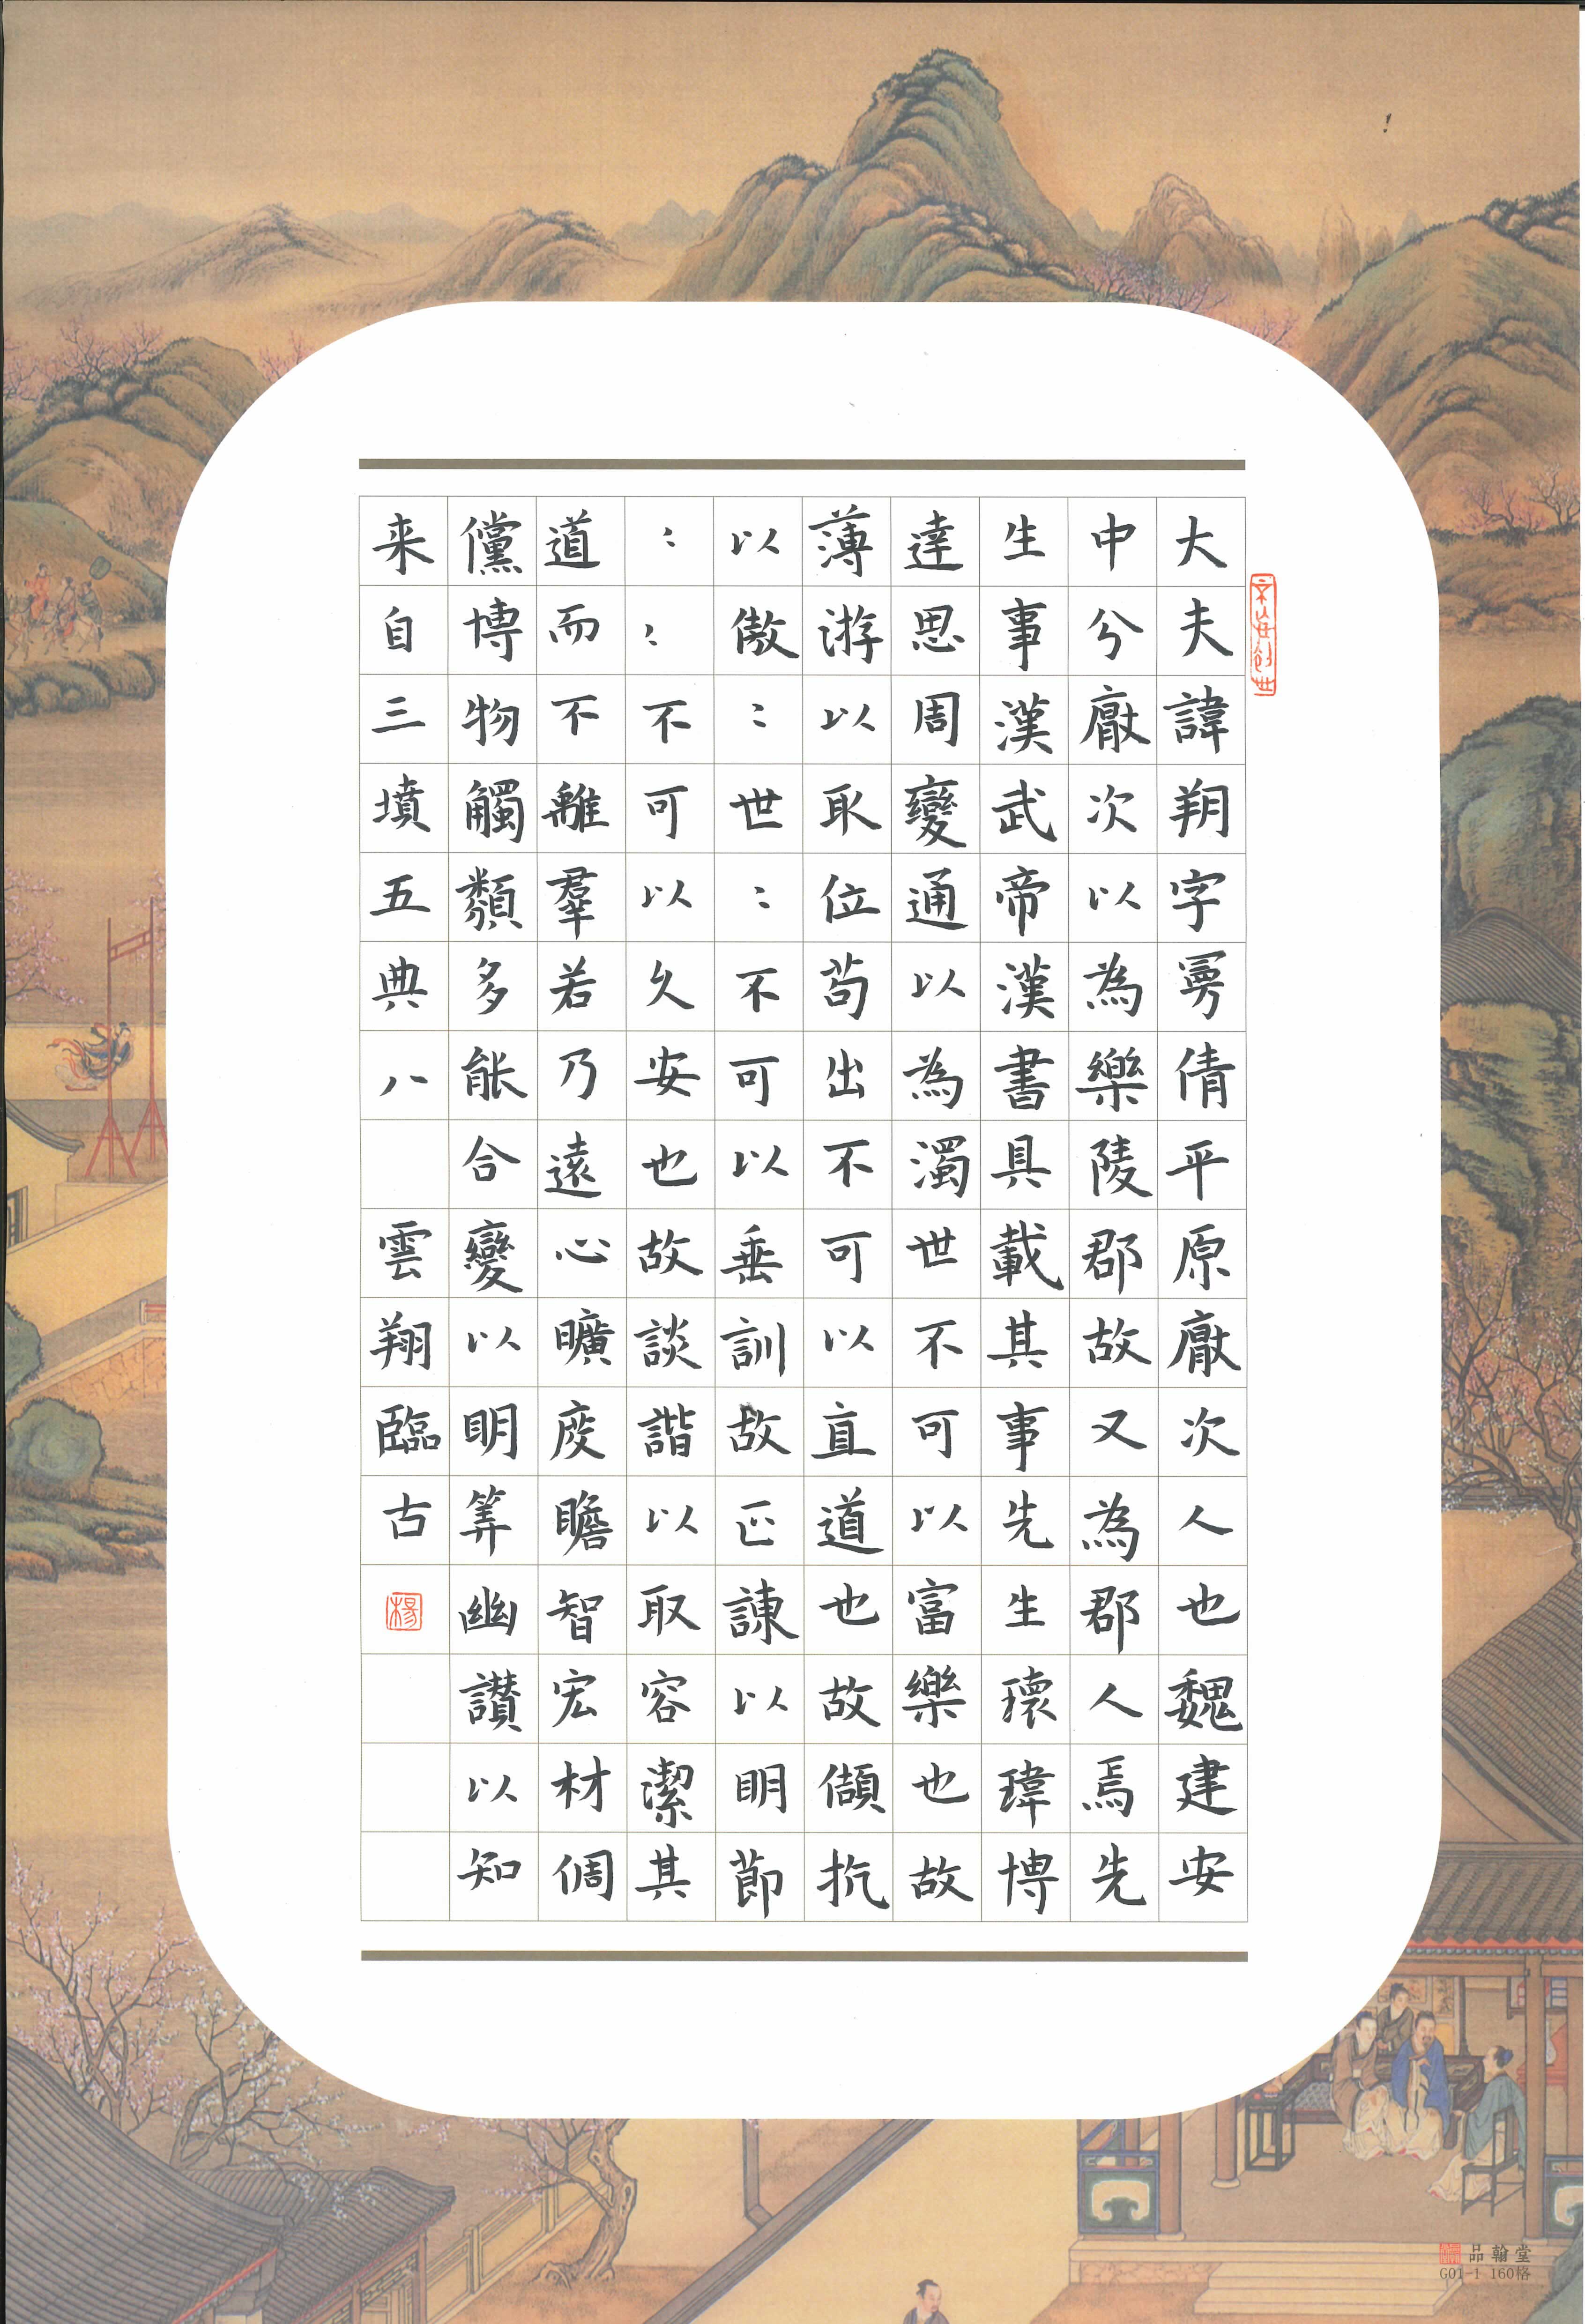 大夫諱朔字曼倩平原厭次人也魏建安
中分厭次以為樂陵郡故又為郡人焉先
生事漢武帝漢書具載其事先生瓌瑋博
達思周變通以為濁世不可以富樂也故
薄游以取位苟出不可以直道也故頡抗
以傲〻世〻不可以垂訓故正諫以明節
〻〻不可以久安也故談諧以取容潔其
道而不離羣若乃遠心曠度贍智宏材倜
儻博物觸類多能合變以明筭幽讃以知
来自三墳五典八 雲翔臨古
楊
品翰堂
G01-1 160格